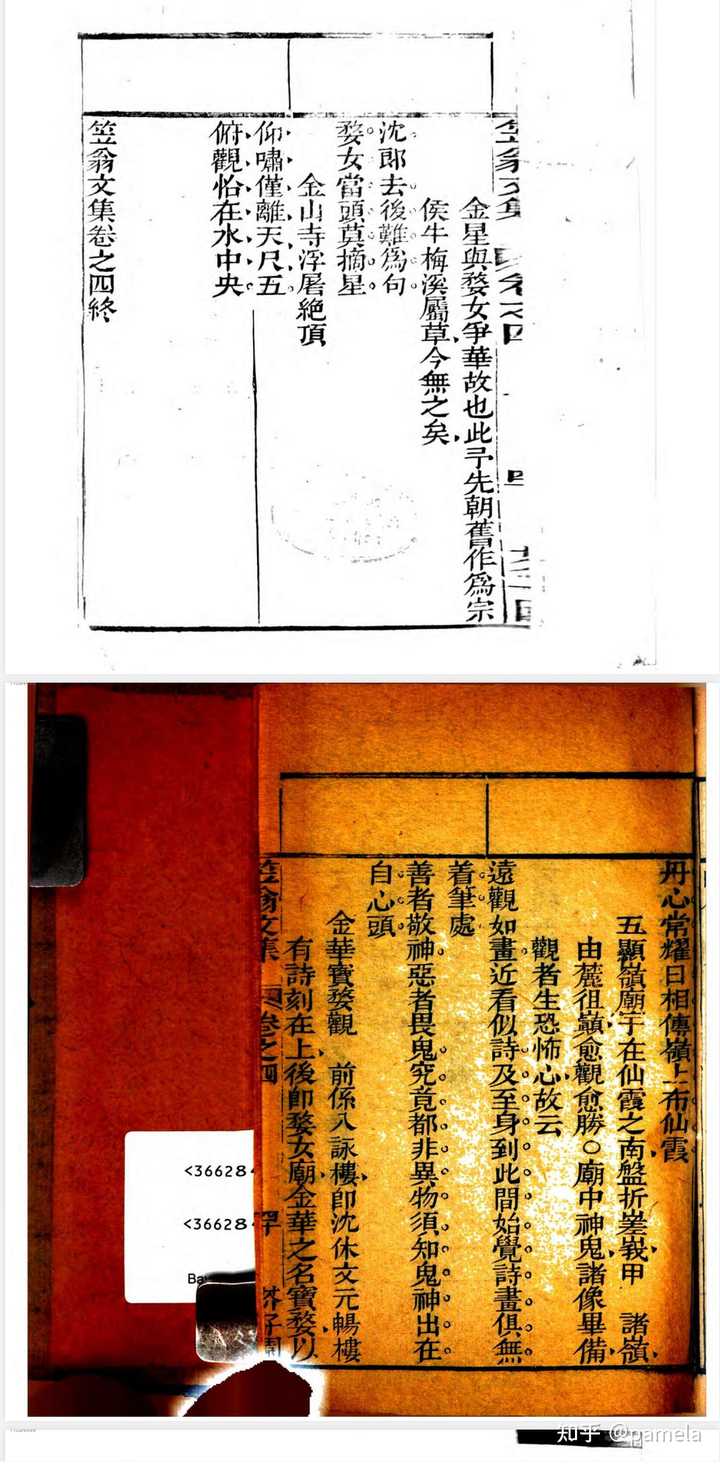 笠翁文集 卷之四
金星與婺女爭華故也此予先朝舊作爲宗
侯牛梅溪屬草今無之矣
沈郎去後難爲句
婺女當頭莫摘星
金山寺浮屠絕頂
仰嘯僅離天尺五
俯觀恰在水中央
笠翁文集卷之四終
丹心常耀日相傳嶺上布仙霞
五顯嶺廟宇在仙霞之南盤折嵳峩甲 諸嶺
由麓徂巔愈觀愈勝○廟中神鬼諸像畢備
觀者生恐怖心故云
遠觀如畫近看似詩及至身到此間始覺詩畫俱無
着筆處
善者敬神惡者畏鬼究竟都非異物須知鬼神出在
自心頭
金華寶婺觀 前係八詠樓卽沈休文元暢樓
有詩刻在上後卽婺女廟金華之名寶婺以
笠翁文集 卷之四 芥子園
<36628
<36628
Ba
知乎 @pamela